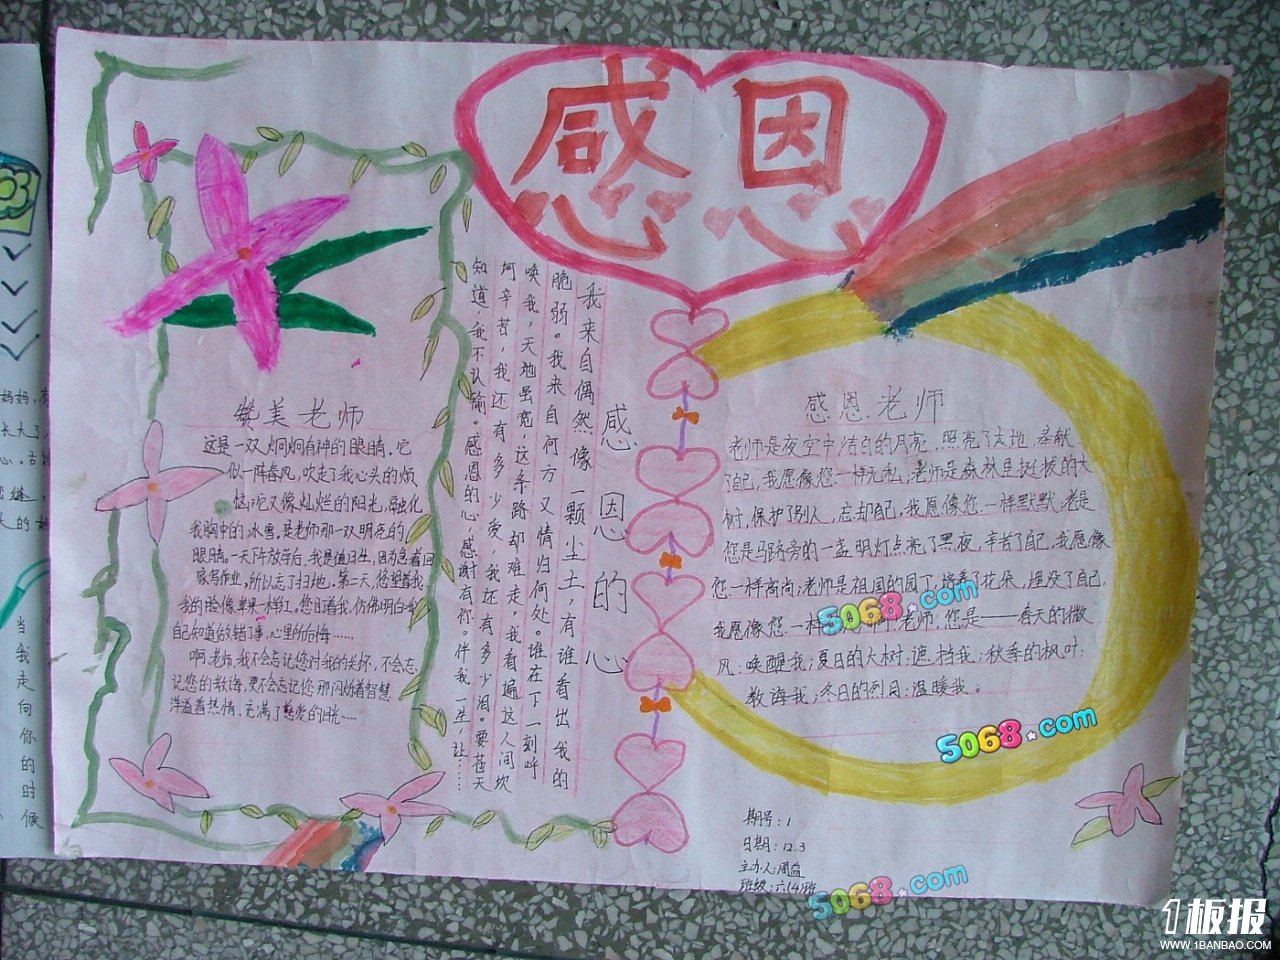 感恩
赞美老师
这是一双炯炯有神的眼睛。它
似一阵春风，吹走了我心头的烦
恼；它又像灿烂的阳光，融化
我胸中的冰雪。是老师那一双明亮的
眼睛。一天下午放学后，我是值日生，因为急着回
家写作业，所以忘了扫地。第二天，您望着我
我的脸像苹果一样红，您目着我，仿佛明白我
自己知道做错了事，心里的后悔……
啊，老师，我不会忘记您对我的关怀，不会忘
记您的教诲，更不会忘记您那闪烁着智慧
洋溢着热情、充满了慈爱的目光……
感恩的心
我来自偶然像一颗尘土，有谁看出我的
脆弱。我来自何方又情归何处。谁在下一刻呼
唤我，天地虽宽，这条路却难走，我看遍这人间坎
坷辛苦，我还有多少爱，我还有多少泪。要苍天
知道，我不认输。感恩的心感谢有你。伴我一生，让……
感恩老师
老师是夜空中洁白的月亮，照亮了大地，奉献
了自己，我愿像您一样无私；老师是森林里挺拔的大
树，保护了别人，忘却自己，我愿像您一样默默；老是
您是马路旁的一盏明灯点亮了黑夜，辛苦了自己，我愿像
您一样高尚；老师是祖国的园丁，培养了花朵，埋没了自己，
我愿像您一样 老师，您是——春天的微
风：唤醒我；夏日的大树：遮挡我；秋季的枫叶：
教诲我；冬日的烈日：温暖我。
期号：1
日期：12.3
主办人：周益
班级：六(4)班
妈妈，
长大了，
当我走向你的时候
5068.com
5068.com
5068.com
1板报
WWW.1BANBAO.COM